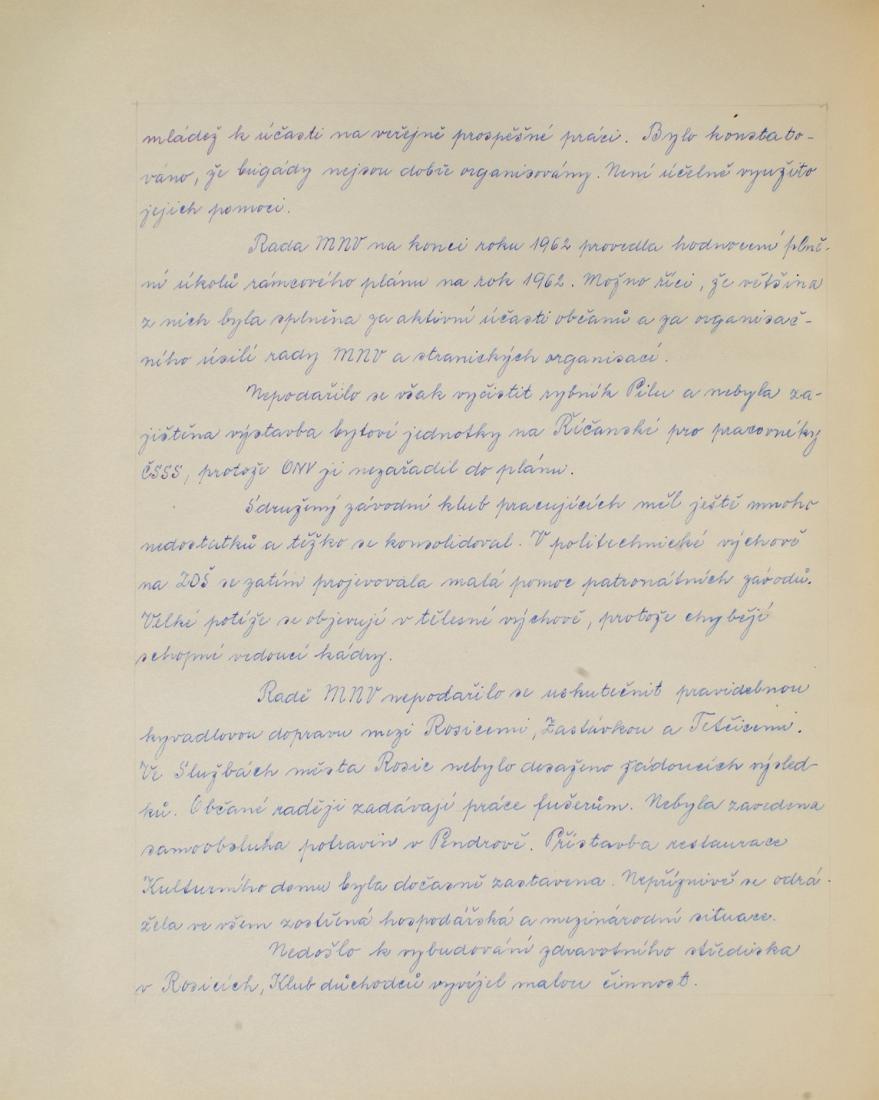 mládež k účasti na veřejně prospěšné práci. Bylo konstato-
váno, že brigády nejsou dobře organisovány. Není účelně využito
jejich pomoci.
Rada MNV na konci roku 1962 provedla hodnocení plně-
ní úkolů rámcového plánu na rok 1962. Možno říci, že většina
z nich byla splněna za aktivní účasti občanů a za organisač-
ního úsilí rady MNV a stranických organisací.
Nepodařilo se však vyčistit rybník Pilu a nebyla za-
jištěna výstavba bytové jednotky na Říčanské pro pracovníky
ČSSS, protože ONV ji nezařadil do plánu.
Sdružený závodní klub pracujících měl ještě mnoho
nedostatků a těžko se konsolidoval. V politechnické výchově
na ZDŠ se zatím projevovala malá pomoc patronátních závodů.
Velké potíže se objevují v tělesné výchově, protože chybějí
schopní vedoucí kádry.
Radě MNV nepodařilo se uskutečnit pravidelnou
kyvadlovou dopravu mezi Rosicemi, Zastávkou a Tetčicemi.
Ve Službách města Rosic nebylo dosaženo žádoucích výsled-
ků. Občané raději zadávají práce fušerům. Nebyla zavedena
samoobsluha potravin v Pendrově. Přístavba restaurace
Kulturního domu byla dočasně zastavena. Nepříznivě se odrá-
žela ve všem zostřená hospodářská a mezinárodní situace.
Nedošlo k vybudování zdravotního střediska
v Rosicích, Klub důchodců vyvíjel malou činnost.